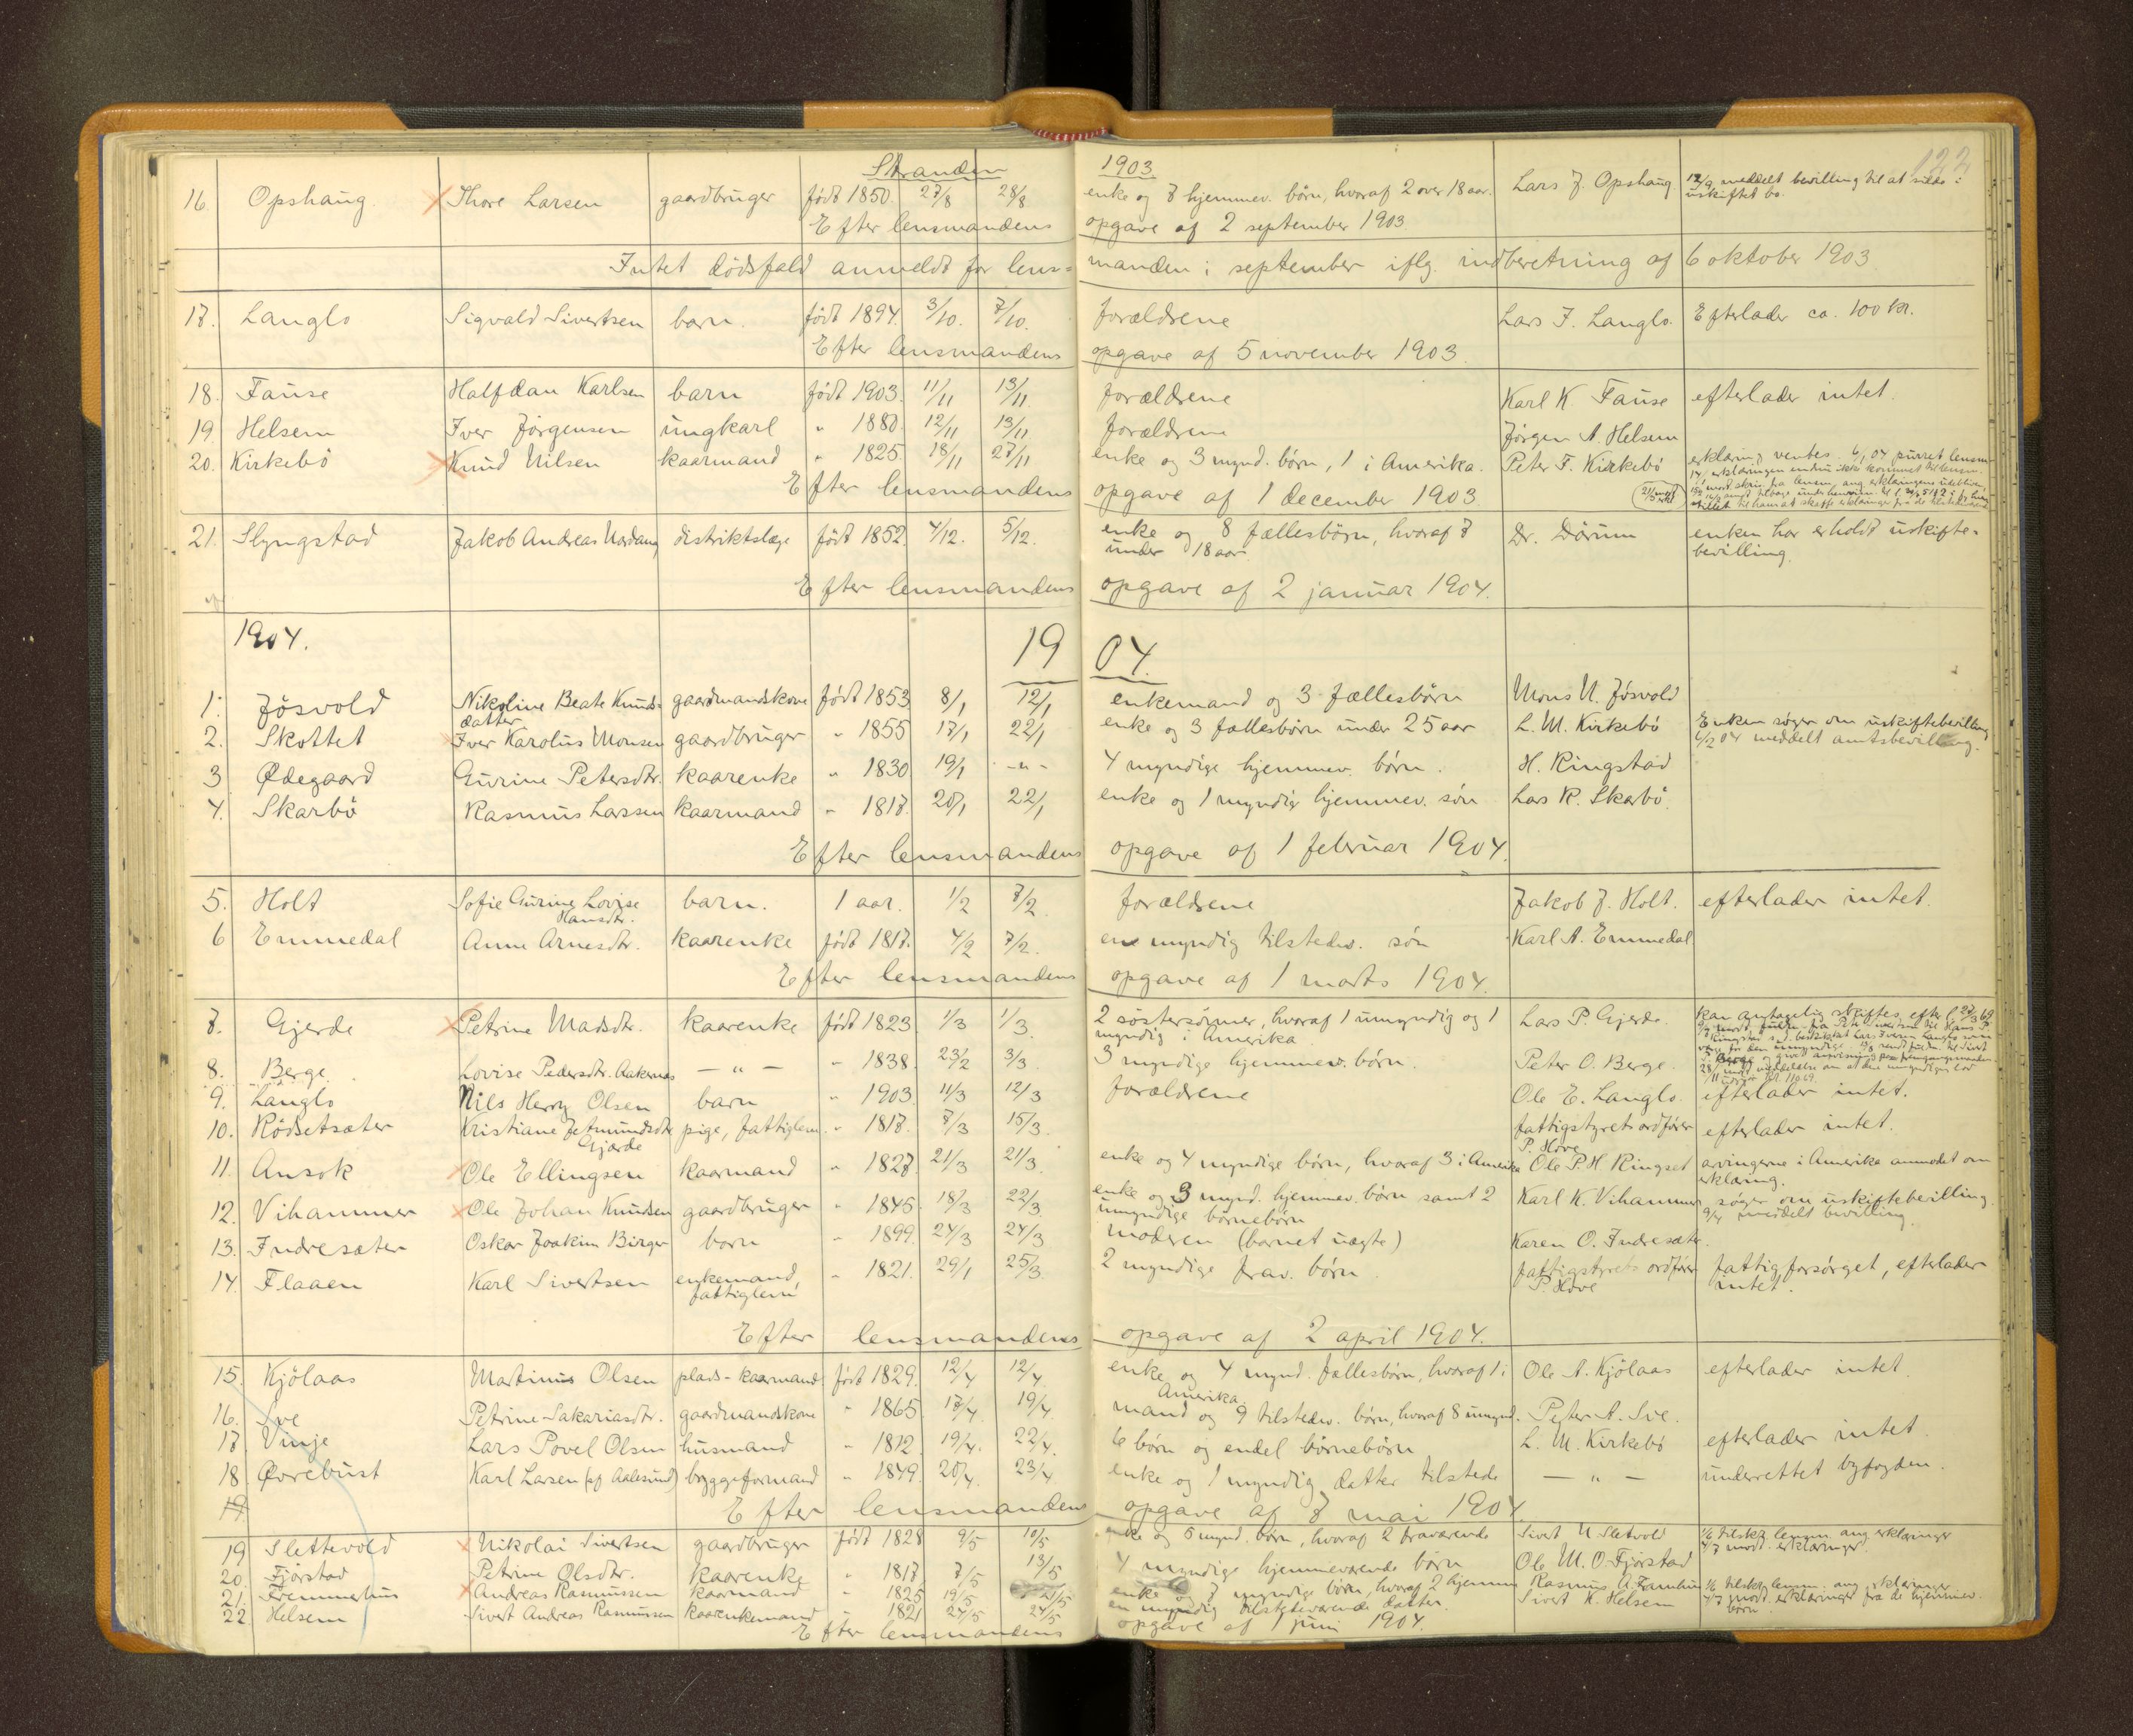 Stranden 1903 122
16. Opshaug. Thore Larsen gaardbruger født 1850. 27/8 28/8 enke og 7 hjemmev. børn, hvoraf 2 over 18 aar. Lars J. Opshaug 12/9 meddelt bevilling til at sidde i
uskiftet bo.
Efter lensmandens opgave af 2 september 1903
Intet dødsfald anmeldt for lens= manden i september iflg. indberetning af 6 oktober 1903
17. Langlo Sigvald Sivertsen barn. født 1894. 3/10. 7/10. forældrene Lars J. Langlo. Efterlader ca. 100 kr.
Efter lensmandens opgave af 5 november 1903.
18. Fause Halfdan Karlsen barn født 1903. 11/11 13/11 forældrene Karl K Fause efterlader intet.
19 Helsem Iver Jørgensen ungkarl " 1880. 12/11 13/11 forældrene Jørgen A. Helsem
20. Kirkebö Knud Nilsen kaarmand " 1825. 18/11 27/11 enke og 3 mynd. børn, 1 i Amerika. Peter F. Kirkebö erklæring ventes. 6/1 04 purret lensm.
erklæringen endnu ikke kommet til lensm.
Efter lensmandens opgave af 1 december 1903.
21. Slyngstad Jakob Andreas Nordang distriktslæge født 1852. 4/12. 5/12. enke og 8 fællesbörn, hvoraf 7 Dr. Dörum enken har erholdt uskifte=
under 18 aar. bevilling.
Efter lensmandens opgave af 2 januar 1904.
1904. 1904.
1. Jösvold Nikoline Beate Knuds= gaardmandskone født 1853 8/1 12/1 enkemand og 3 fællesbörn Mons N. Jösvold
datter
2. Skottet Iver Karolus Monsen gaardbruger " 1855 17/1 22/1 enke og 3 fællesbörn under 25 aar L. M. Kirkebö Enken søger om uskiftebevilling
6/2 04 meddelt amtsbevilling.
3 Ødegaard Gurine Petersdtr. kaarenke " 1830. 19/1 -"- 4 myndige hjemmev. børn. H. Ringstad
4. Skarbö Rasmus Larssen kaarmand " 1817. 20/1 22/1 enke og 1 myndig hjemmev. sön Lars R. Skarbö.
Efter lensmandens opgave af 1 februar 1904.
5. Holt Sofie Gurine Lovise barn. 1 aar. 1/2 7/2 forældrene Jakob J. Holt. efterlader intet.
Hansdtr.
6 Emmedal Anne Arnesdtr. kaarenke født 1817. 4/2 7/2. en myndig tilstedev. sön Karl A. Emmedal
Efter lensmandens opgave af 1 marts 1904.
7. Gjerde Petrine Madsdtr. kaarenke født 1823. 1/3 1/3. 2 søstersønner, hvoraf 1 umyndig og 1 Lars P. Gjerde. kan antagelig skiftes efter l 27/3 69
myndig i Amerika
8. Berge Lovise Pedersdtr. Aakernes - " - " 1838. 23/2 3/3 3 myndige hjemmev. børn. Peter O. Berge.
9. Langlo Nils Herry Olsen barn " 1903 11/3 12/3 forældrene Ole E. Langlo. efterlader intet.
10. Rödsetsæter Kristiane Jetmundsdtr pige, fattiglem " 1817. 7/3 15/3. fattigstyrets ordfører efterlader intet.
Gjærde P. Hove
11. Ansok Ole Ellingsen kaarmand " 1827. 21/3 21/3 enke og 4 myndige børn, hvoraf 3 i Amerika Ole P. H. Ringset arvingerne i Amerika anmodet om
erklæring.
12. Vihammer Ole Johan Knudsen gaardbruger " 1845. 18/3 22/3 enke og 3 mynd. hjemmev. børn samt 2 Karl K. Vihammer søger om uskiftebevilling
umyndige børnebörn 9/4 meddelt bevilling.
13. Indresæter Oskar Joakim Birger barn " 1899. 24/3 24/3 moderen (barnet uægte) Karen O. Indresæter.
14. Flaaen Karl Sivertsen enkemand, " 1821. 29/1 25/3. 2 myndige frav. børn. fattigstyrets ordfører fattigforsörget, efterlader
fattiglem P. Hove intet.
Efter lensmandens opgave af 2 april 1904.
15. Kjölaas Martinus Olsen plads-kaarmand født 1829. 12/4 12/4. enke og 4 mynd. fællesbörn, hvoraf 1 i Ole A. Kjölaas efterlader intet.
Amerika
16. Sve Petrine Sakariasdtr. gaardmandskone " 1865 17/4 19/4. mand og 9 tilstedev. børn, hvoraf 8 umynd. Peter A. Sve.
17. Vinje Lars Povel Olsen husmand " 1812. 19/4. 22/4. 6 børn og endel børnebörn L. M. Kirkebö efterlader intet
18 Øvrebust Karl Larsen (af Aalesund) bryggeformand " 1849. 20/4. 23/4. enke og 1 myndig datter tilstede - " - underrettet byfogden.
19
Efter lensmandens opgave af 7 mai 1904
19 Slettevold Nikolai Sivertsen gaardbruger født 1828 9/5 10/5 enke og 5 mynd. børn, hvoraf 2 fraværende Sivert N Sletvold 1/6 tilskr. lensm. ang. erklæringer
4/7 modt. erklæringer
20. Fjörstad Petrine Olsdtr. kaarenke " 1817 7/5 13/5 4 myndige hjemmeværende børn Ole M. O. Fjörstad
21. Fremmerhus Andreas Rasmussen kaarmand " 1825 19/5 enke og 7 myndige børn, hvoraf 2 hjemm Rasmus A. 1/6 tilskr. lensm. ang. erklæringer
4/7 modt. erklæringer fra de hjemmev.
børn.
22 Helsem Sivert Andreas Rasmussen kaarenkemand " 1821 24/5 24/5 en myndig tilstedeværende datter. Sivert K. Helsem
Efter lensmandens opgave af 1 juni 1904.